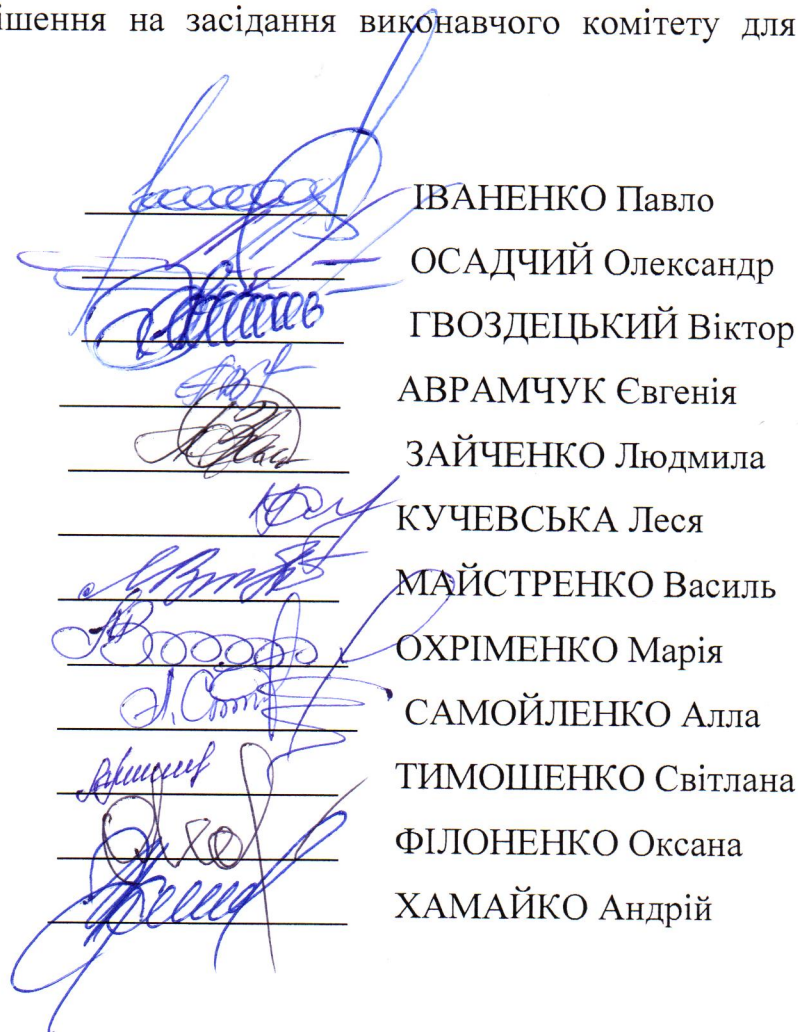 ішення на засідання виконавчого комітету для
ІВАНЕНКО Павло
ОСАДЧИЙ Олександр
ГВОЗДЕЦЬКИЙ Віктор
АВРАМЧУК Євгенія
ЗАЙЧЕНКО Людмила
КУЧЕВСЬКА Леся
МАЙСТРЕНКО Василь
ОХРІМЕНКО Марія
САМОЙЛЕНКО Алла
ТИМОШЕНКО Світлана
ФІЛОНЕНКО Оксана
ХАМАЙКО Андрій